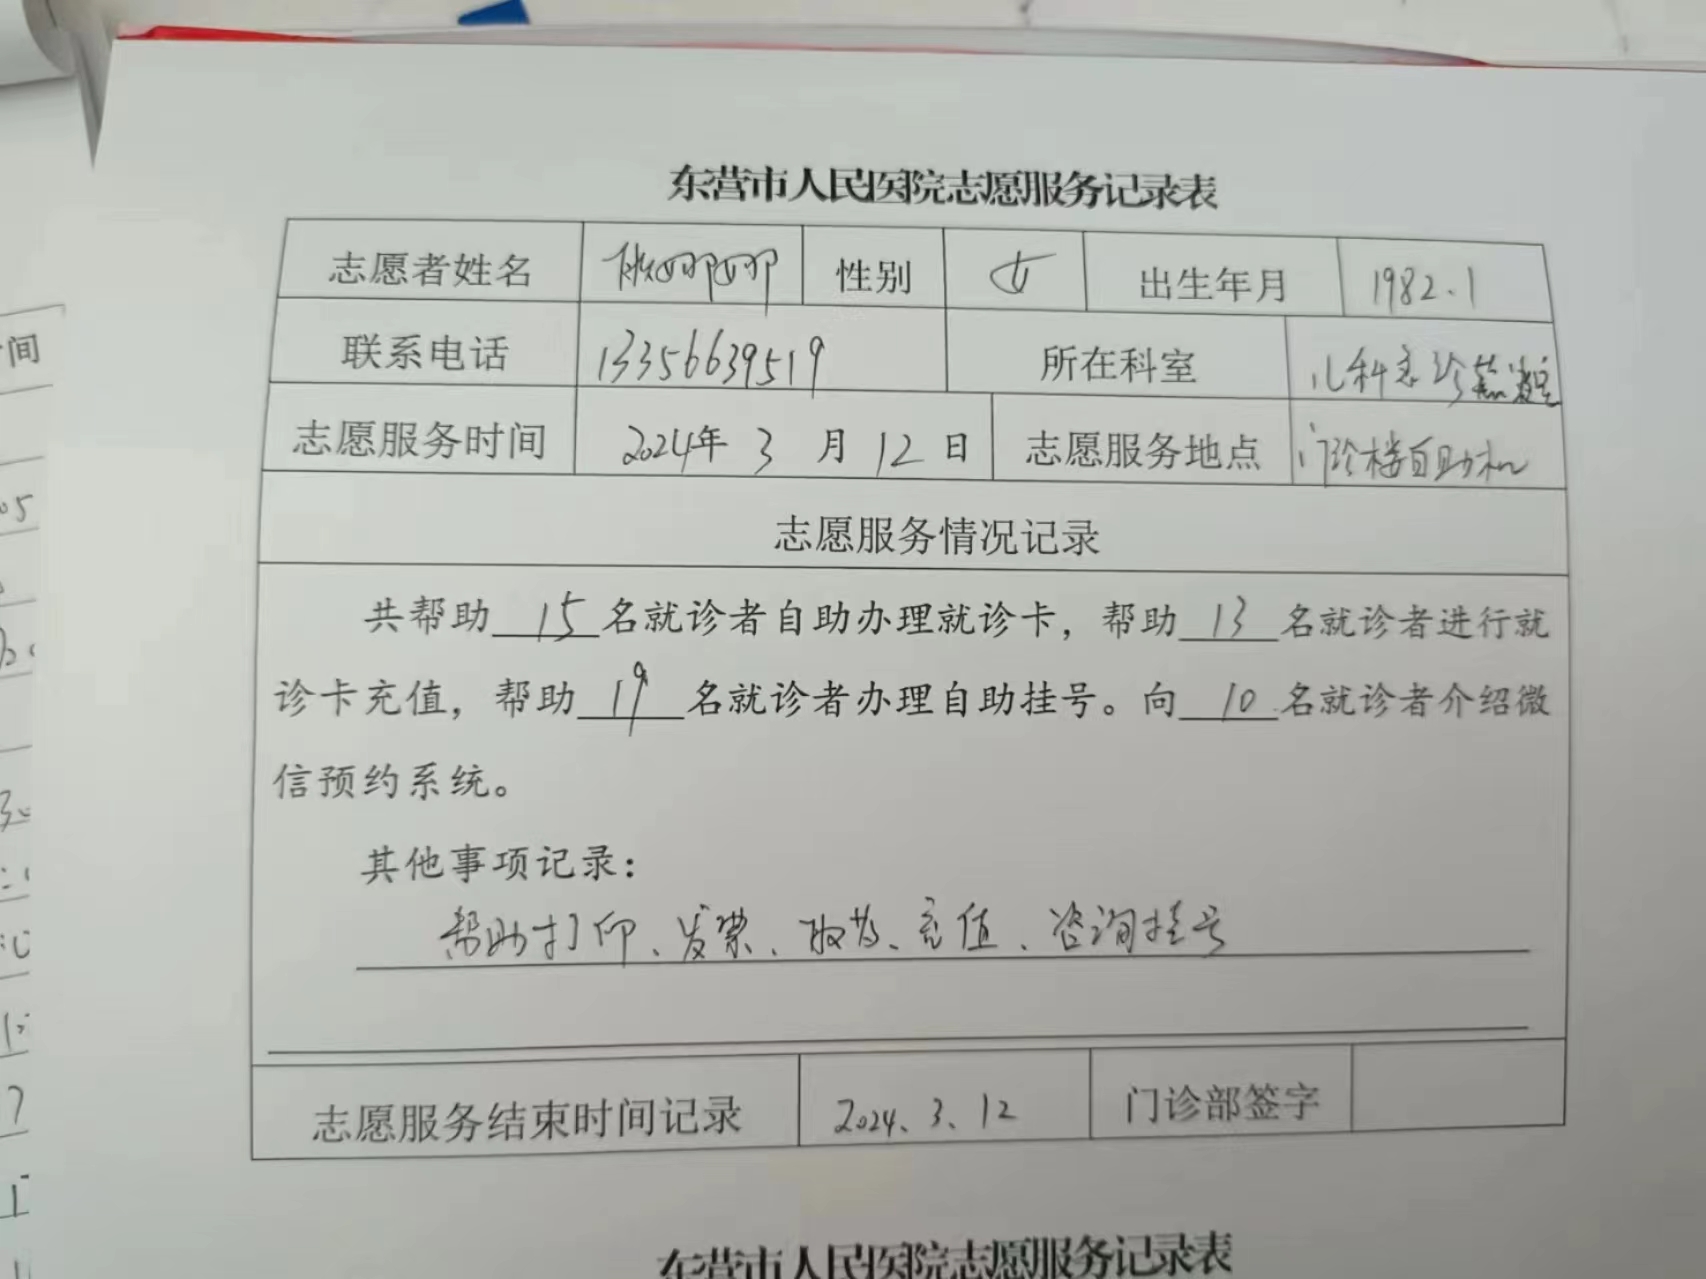 东营市人民医院志愿服务记录表
志愿者姓名 娜娜 性别 女 出生年月 1982.1
联系电话 13356639519 所在科室 儿科急诊输液室
志愿服务时间 2024年 3 月 12 日 志愿服务地点 门诊楼自助机
志愿服务情况记录
共帮助 15 名就诊者自助办理就诊卡，帮助 13 名就诊者进行就
诊卡充值，帮助 19 名就诊者办理自助挂号。向 10 名就诊者介绍微
信预约系统。
其他事项记录：
帮助打印、发票、取药、充值、咨询挂号
志愿服务结束时间记录 2024、3、12 门诊部签字
东营市人民医院志愿服务记录表
间
05
7